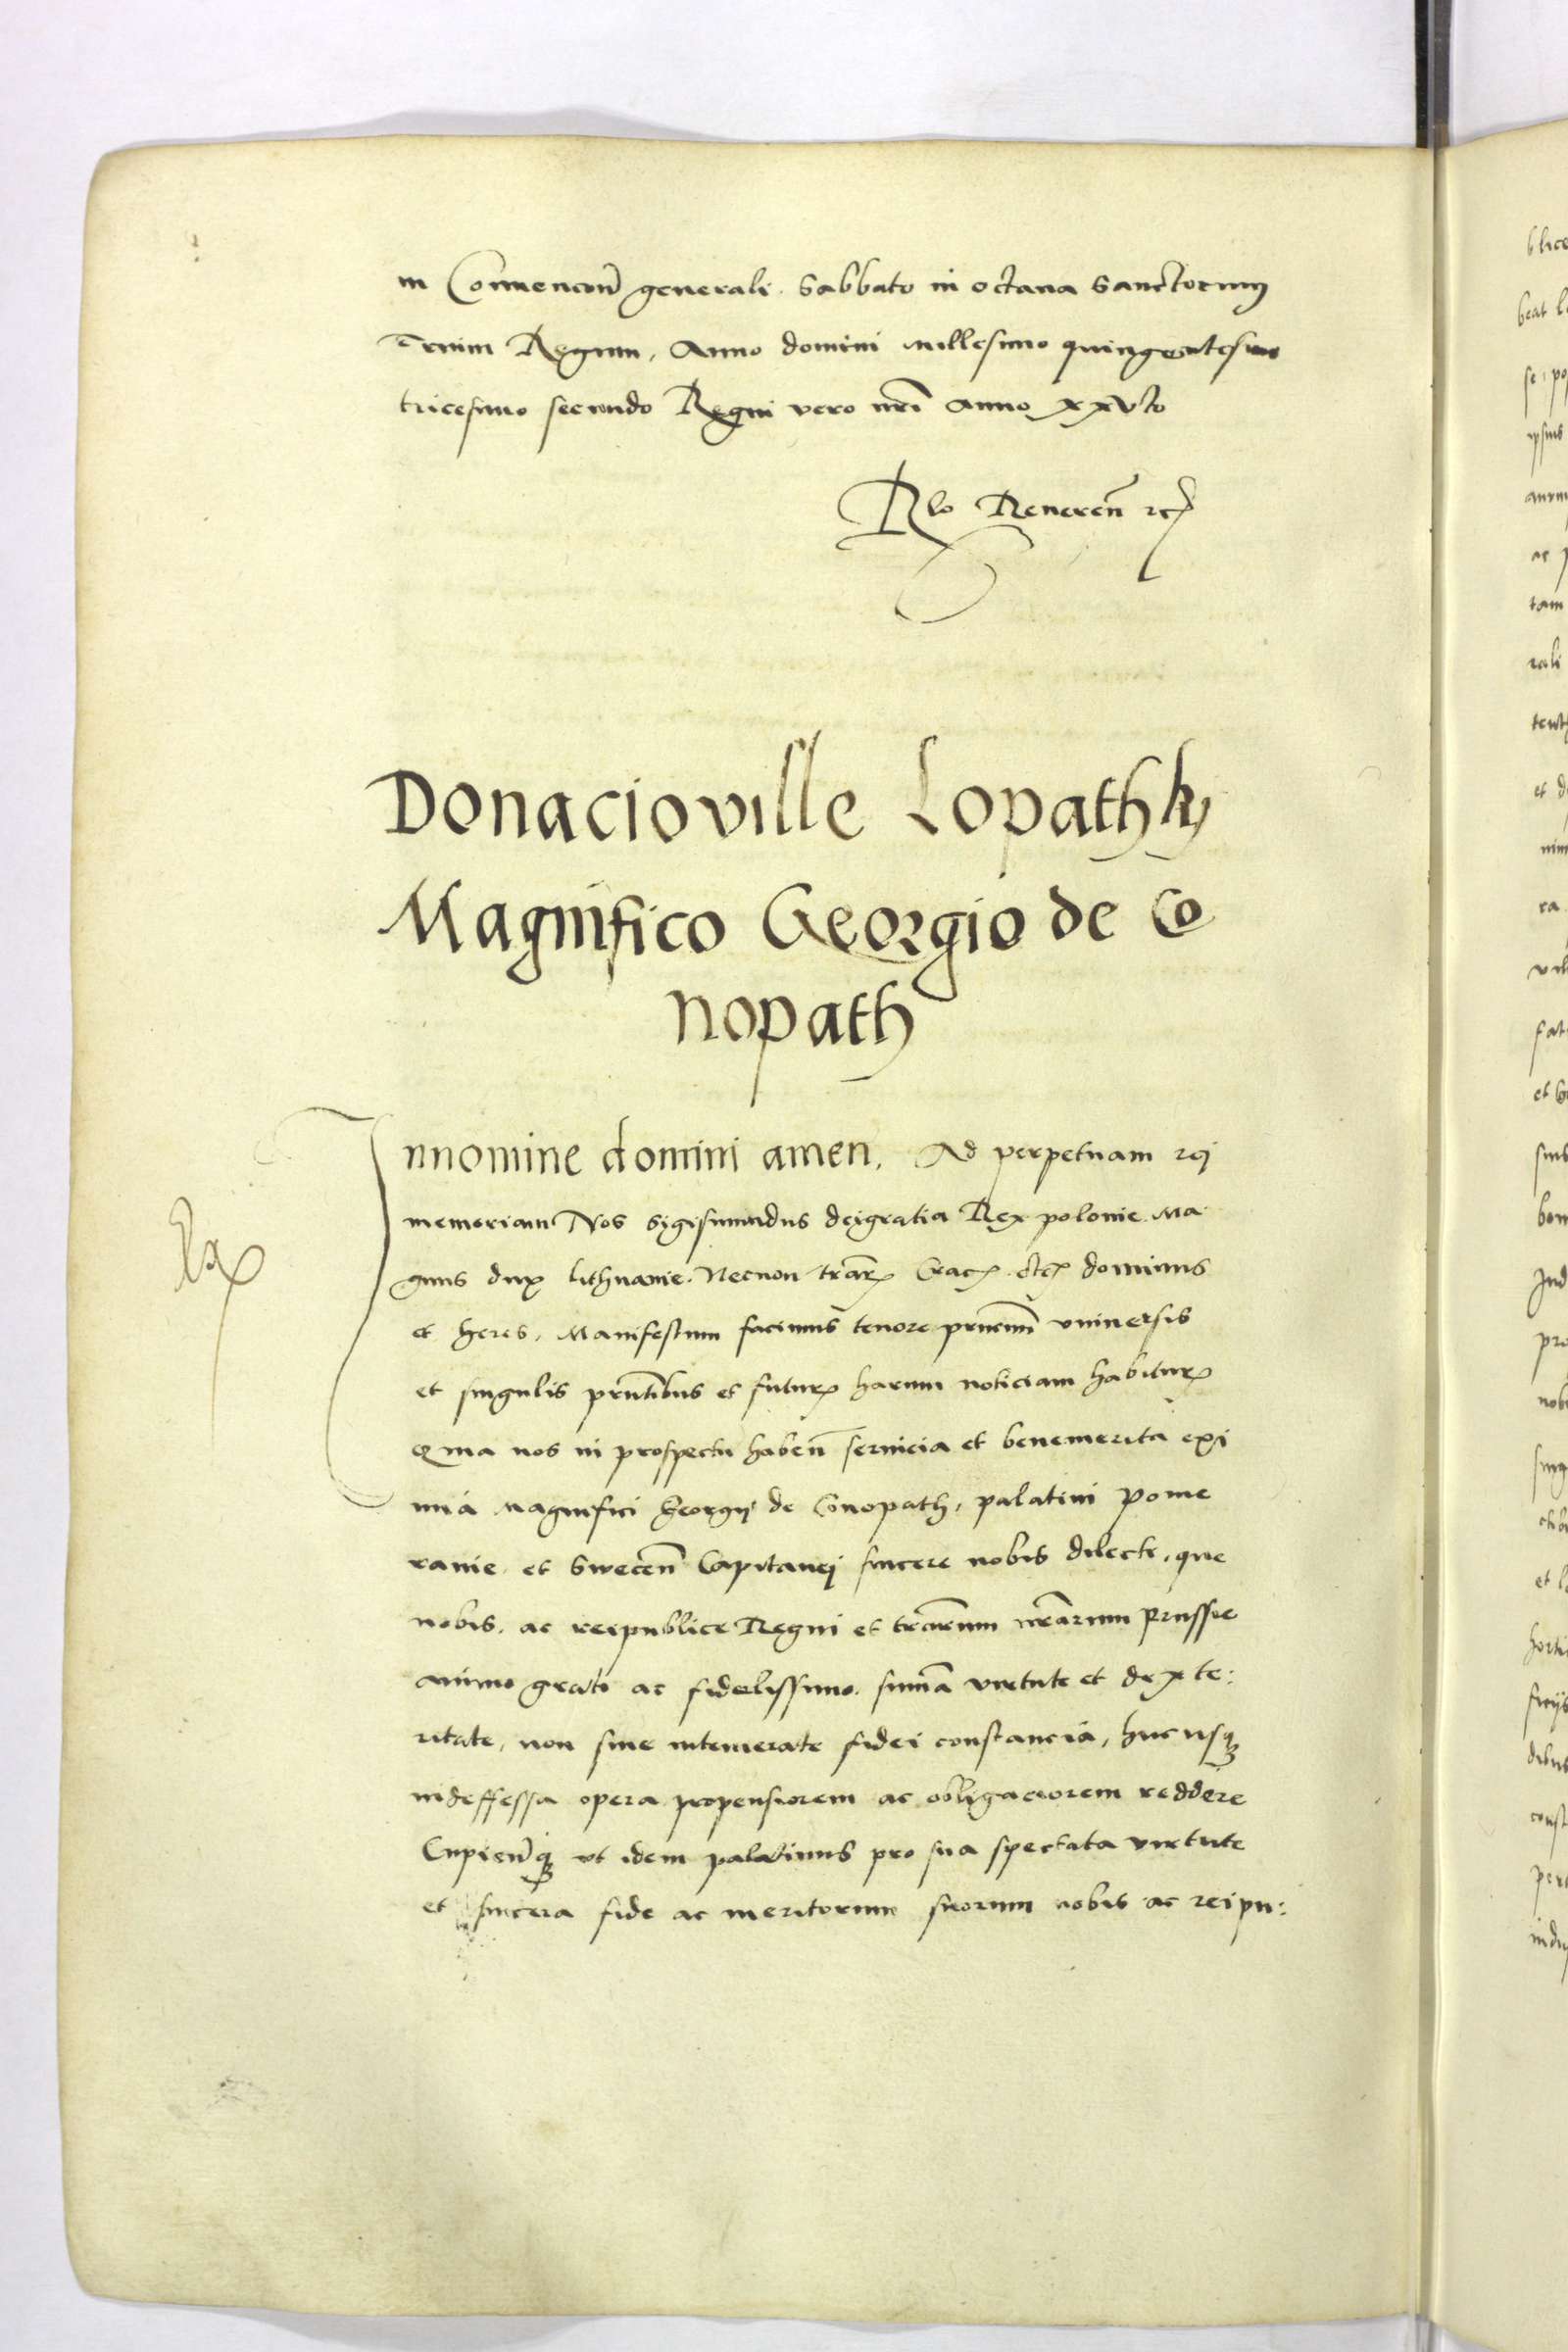 in Conuencion̄ generali. Sabbato in octaua Sanctorum
Trium Regum, Anno domini millesimo quingentesimo
tricesimo secundo Regni vero nr̄i Anno xxvto
Rlo Reueren̄ etc
Donacio ville Lopathky
Magnifico Georgio de Co
nopath
In nomine domini amen. Ad perpetuam rei
memoriam Nos Sigismundus dei gratia Rex polonie Ma
gnus dux lithuanie. Necnon trar̄ Crac. etc dominus
et heres. Manifestum facimus tenore prn̄cium vniuersis
et singulis prn̄tibus et futur̄ harum noticiam habitur̄
Quia nos in prospectu haben̄ seruicia et benemerita exi
mia Magnifici Georgii de Conopath, palatini Pome
ranie et Swecen̄ Capitanei sincere nobis dilecti, que
nobis. ac reipublice Regni et trarum nr̄arum Prussie
animo grato ac fidelissimo. sum̄a virtute et dexte:
ritate, non sine intemerate fidei constancia, hucusq
indeffessa opera propensiorem ac obligaciorem reddere
Cupien̄q vt idem palatinus pro sua spectata virtute
et sincera fide ac meritorum suorum nobis ac reipu: